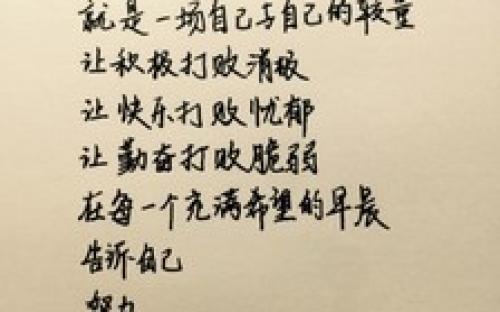 就是一场自己与自己的较量
让积极打败消极
让快乐打败忧郁
让勤奋打败脆弱
在每一个充满希望的早晨
告诉自己
努力